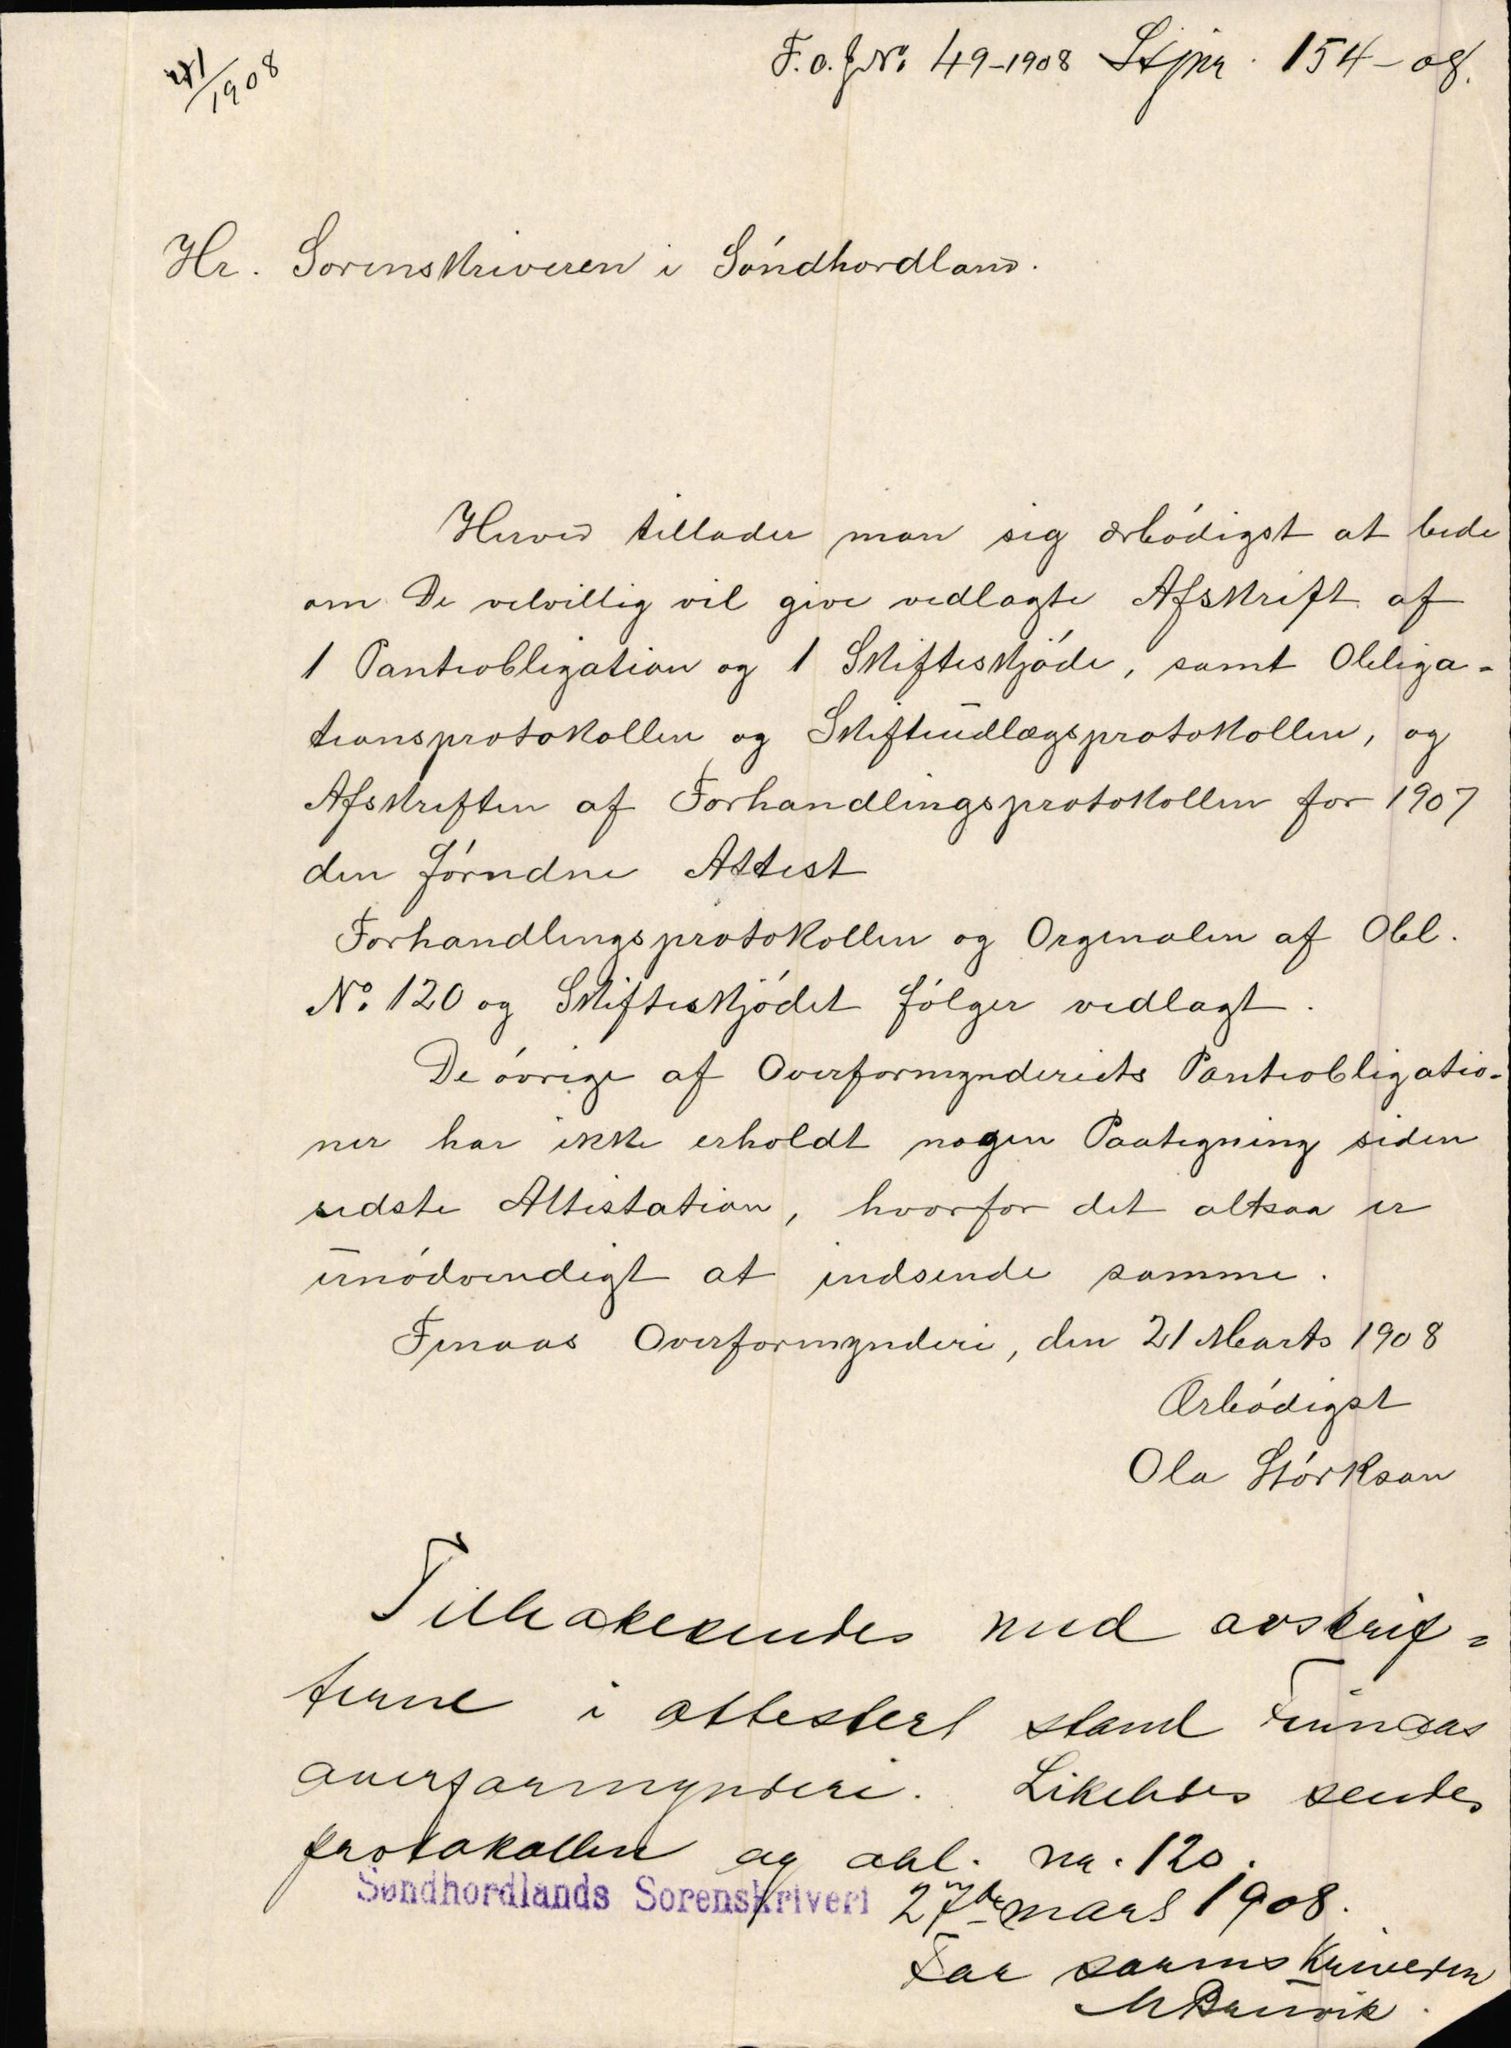 F.o. J No. 49-1908 Stjnr. 154-08.
1908
Hr. Sorenskriveren i Søndhordland.
Herved tillader man sig ærbødigst at bede
om De velvillig vil give vedlagte Afskrift af
1 Panteobligation og 1 Skifteskjøde, samt Obliga-
tionsprotokollen og Skifteudlægsprotokollen, og
Afskriften af Forhandlingsprotokollen for 1907
den førndne Attest
Forhandlingsprotokollen og Orginalen af Obl.
No. 120 og Skifteskjødet følger vedlagt.
De øvrige af Overformynderiets Panteobligatio-
ner har ikke erholdt nogen Paategning siden
sidste Attestation, hvorfor det altsaa er
unødvendigt at indsende samme.
Finaas Overformynderi, den 21 Marts 1908
Ærbødigst
Ola Størkson
Tilbakesendes med avskrif-
terne i attestert stand Finnaas
overformynderi. Likeledes sendes
protokollen og obl. nr. 120.
Søndhordlands Sorenskriveri 27de mars 1908.
For sorenskriveren